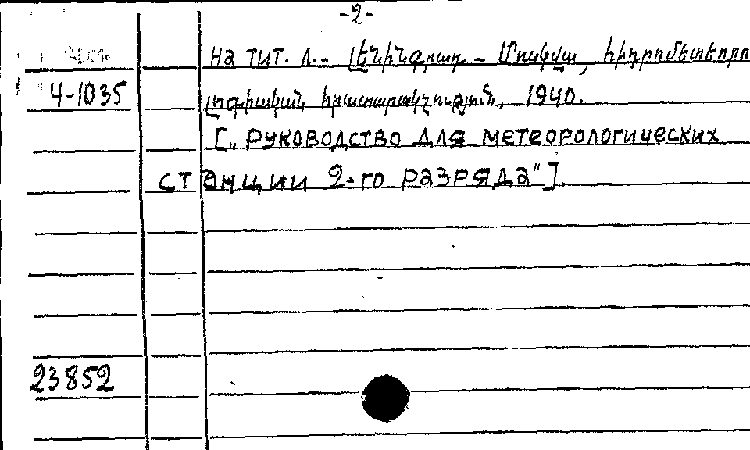 -2-
на тит. л.- Լենինգրադ - Մոսկվա, հիդրոմետեորո
4-1035 լոգիական հրատարակչություն, 1940.
[„Руководство для метеорологических
станции 2-го разряда"].
23852